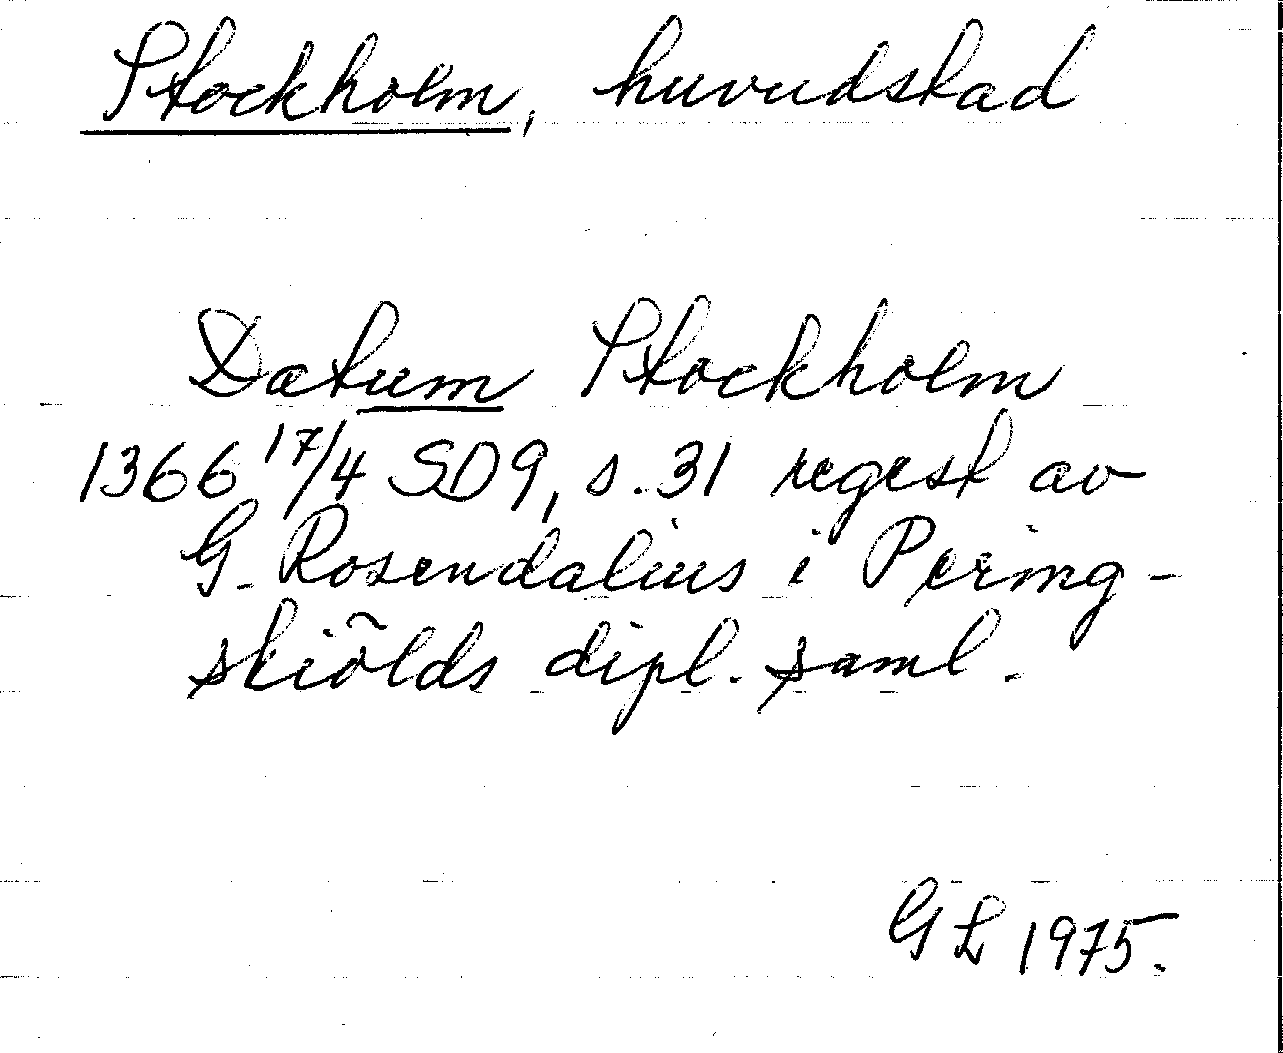 Stockholm, huvudstad
Datum Stockholm
1366 17/4 SD9, s. 31 regest av
G. Rosendalius i Pering-
skiölds dipl. saml.
GL 1975.